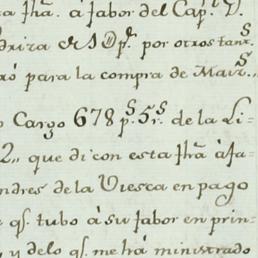 a fhã. á fabor del Capn. D.
por otros tants.
ró para la compra de Mairs.
o Cargo 678ps.5rs. de la Li-
2,, que di con esta fhã áfa-
ndres de la Viesca en pago
e qs. tubo á su fabor en prin-
y delo qs. me há ministrado